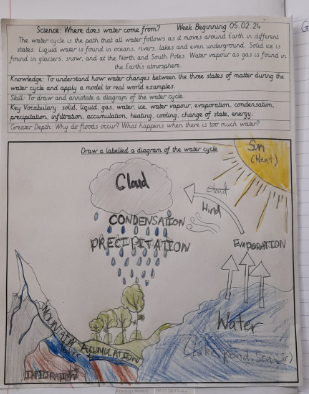 Science: Where does water come from? Week Beginning 05.02.24
The water cycle is the path that all water follows as it moves around Earth in different
states. Liquid water is found in oceans, rivers, lakes and even underground. Solid ice is
found in glaciers, snow, and at the North and South Poles. Water vapour as gas is found in
the Earth's atmosphere.
Knowledge: To understand how water changes between the three states of matter during the
water cycle and apply a model to real world examples.
Skill: To draw and annotate a diagram of the water cycle
Key Vocabulary: solid, liquid, gas, water, ice, water vapour, evaporation, condensation,
precipitation, infiltration, accumulation, heating, cooling, change of state, energy.
Greater Depth: Why do floods occur? What happens when there is too much water?
Draw a labelled a diagram of the water cycle
Sun
(Heat)
Cloud
Wind
CONDENSATION
PRECIPITATION
EVAPORATION
Water
ACUMULATION